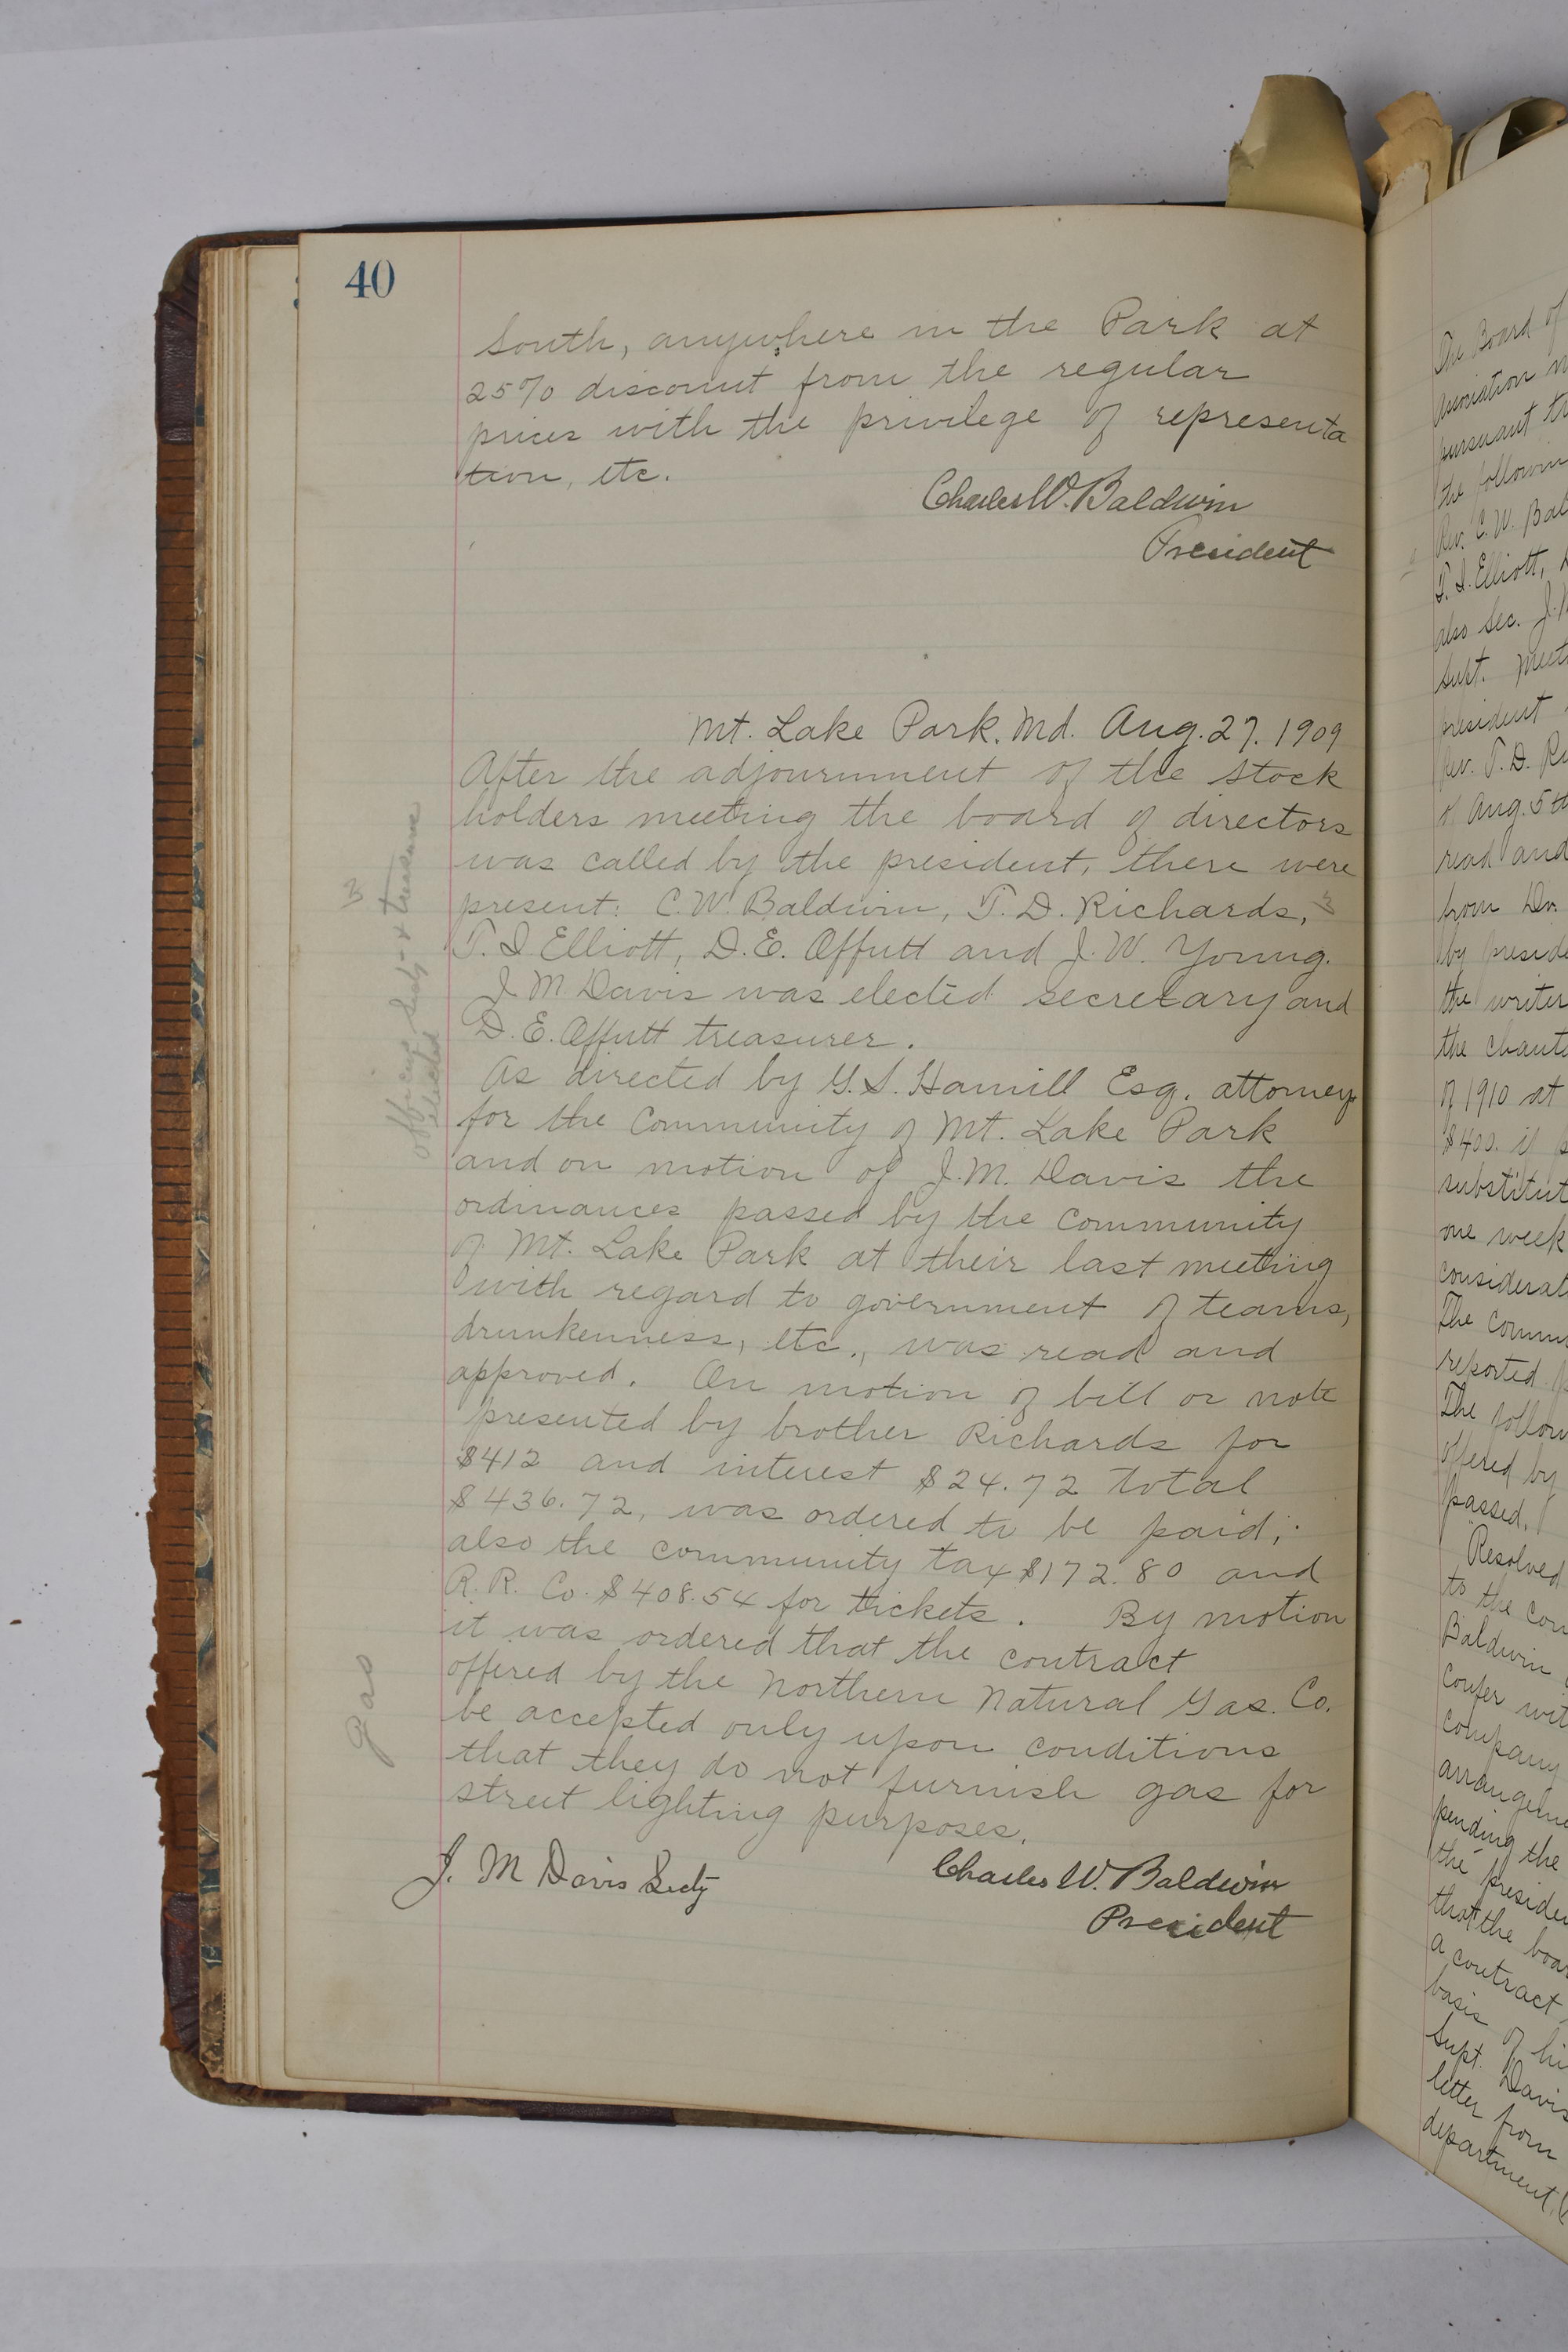 40
South, anywhere in the Park at
25% discount from the regular
prices with the privilege of representa
tion, etc.
Charles W. Baldwin
President
Mt. Lake Park, Md. Aug. 27. 1909
After the adjournment of the stock
holders meeting the board of directors
was called by the president, there were
present: C. W. Baldwin, T. D. Richards, 3
T. I Elliott, D. E. Offutt and J. W. Young.
J M Davis was elected secretary and
D. E. Offutt treasurer.
As directed by G. S. Hamill Esq. attorney
for the Community of Mt. Lake Park
and on motion of J. M. Davis the
ordinances passed by the community
of Mt. Lake Park at their last meeting
with regard to government of teams,
drunkenness, etc., was read and
approved. On motion of bill or note
presented by brother Richards for
$412 and interest $24.72 total
$436.72, was ordered to be paid;
also the community tax $172.80 and
R. R. Co. $408.54 for tickets. By motion
it was ordered that the contract
offered by the Northern Natural Gas. Co.
be accepted only upon conditions
that they do not furnish gas for
street lighting purposes.
J. M Davis Secty
Charles W. Baldwin
President
3
officers Secty & treasurer
elected
gas
The Board of
Association
pursuant
the
Rev. C. W.
T. I. Elliott,
also Sec.
Supt.
president
Rev. T. D.
of Aug. 5
read and
from Dr.
by
the writer
the
of 1910 at
$400. if
one week
The
reported
The
offered by
passed.
Resolved
to the
Baldwin
Confer
company
pending the
the
that the
a contract
basis of
Supt. Davis
letter from
department,